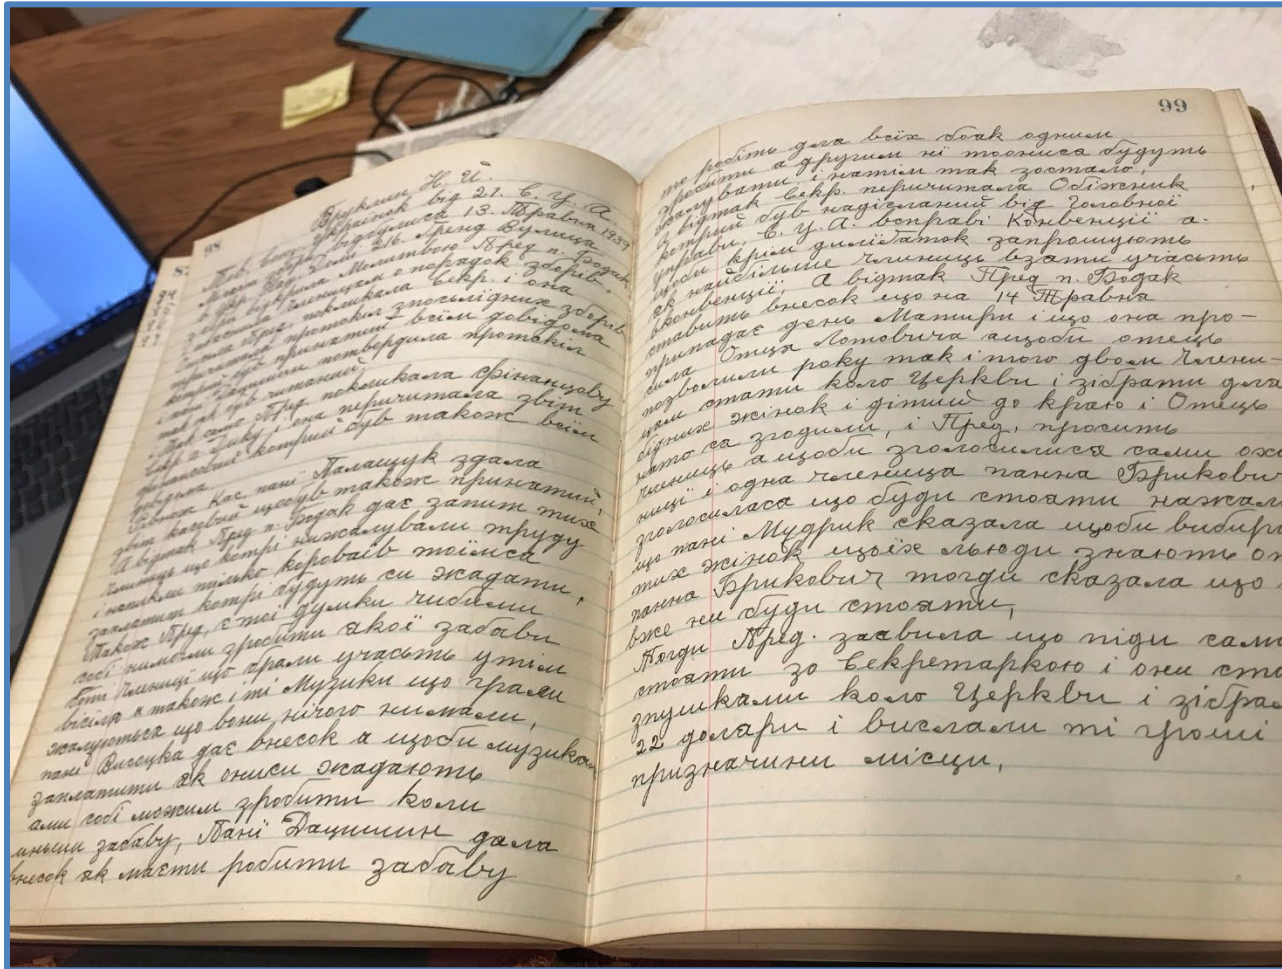 98
Бруклин Н. Й.
від 21. С. У. А.
13. Травня 1939
216. Гренд Вулиця
Молитвою Пред п. Бодак
членицям о порядок зборів.
Пред. покликала секр. і она
протокол з послідних зборів
був принятий і всім довідома
потвердила протокіл
так як був читаний,
Так само Пред покликала фінансову
секр п Дику і она перечитала звіт
фінансовий котрий був також всім
Кас. пані Палащук здала
звіт касовий що був також принятий,
А відтак Пред п. Бодак дає запит тих
члениць що котрі нижалували труду
і напикли тілько короваїв
заплатит котрі будуть си жадати,
Також Пред, є тої думки чибими
собі нимогли зробити якої забави
Члениці що брали участь утім
а також і ті Музики що грали
жалуються що вони нічого нимали,
пані Висоцка дає внесок а щоби музикам
заплатити як ониси жадають
ами собі можим зробити коли
забаву, Пані Дацишин дала
внесок як маєти робити забаву
99
то робіть для всіх бо як одним
зробити а другим ні то ониса будуть
жалувати і натім так зостало,
А відтак Секр. перичитала Обіжник
котрий був надісланий від Головної
управи, С. У. А. всправі Конвенції а-
щоби крім делєґаток запрошують
як найбільше Члениць взяти участь
вконвенції, А відтак Пред п. Бодак
ставить внесок що на 14 Травня
припадає день Матири і що она про-
сила Отця Лотовича ащоби отець
позволили року так і того двом Члени-
цям стати коло Церкви і зібрати для
бідних жінок і дітий до краю і Отець
нато са згодили, і Пред. просить
Члениць ащоби зголосилися сами
ниці і одна членица панна Брикович
зголосиласа що буди стояти нажаль
що пані Мудрик сказала щоби вибира
тих жінок щоїх льюди знають
панна Брикович тогди сказала що
вже ни буди стояти,
Тогди Пред. заявила що піди сама
стояти зо Секретаркою і они
зпушками коло Церкви і зібрали
22 доляри і вислали ті гроші
призначини місци,